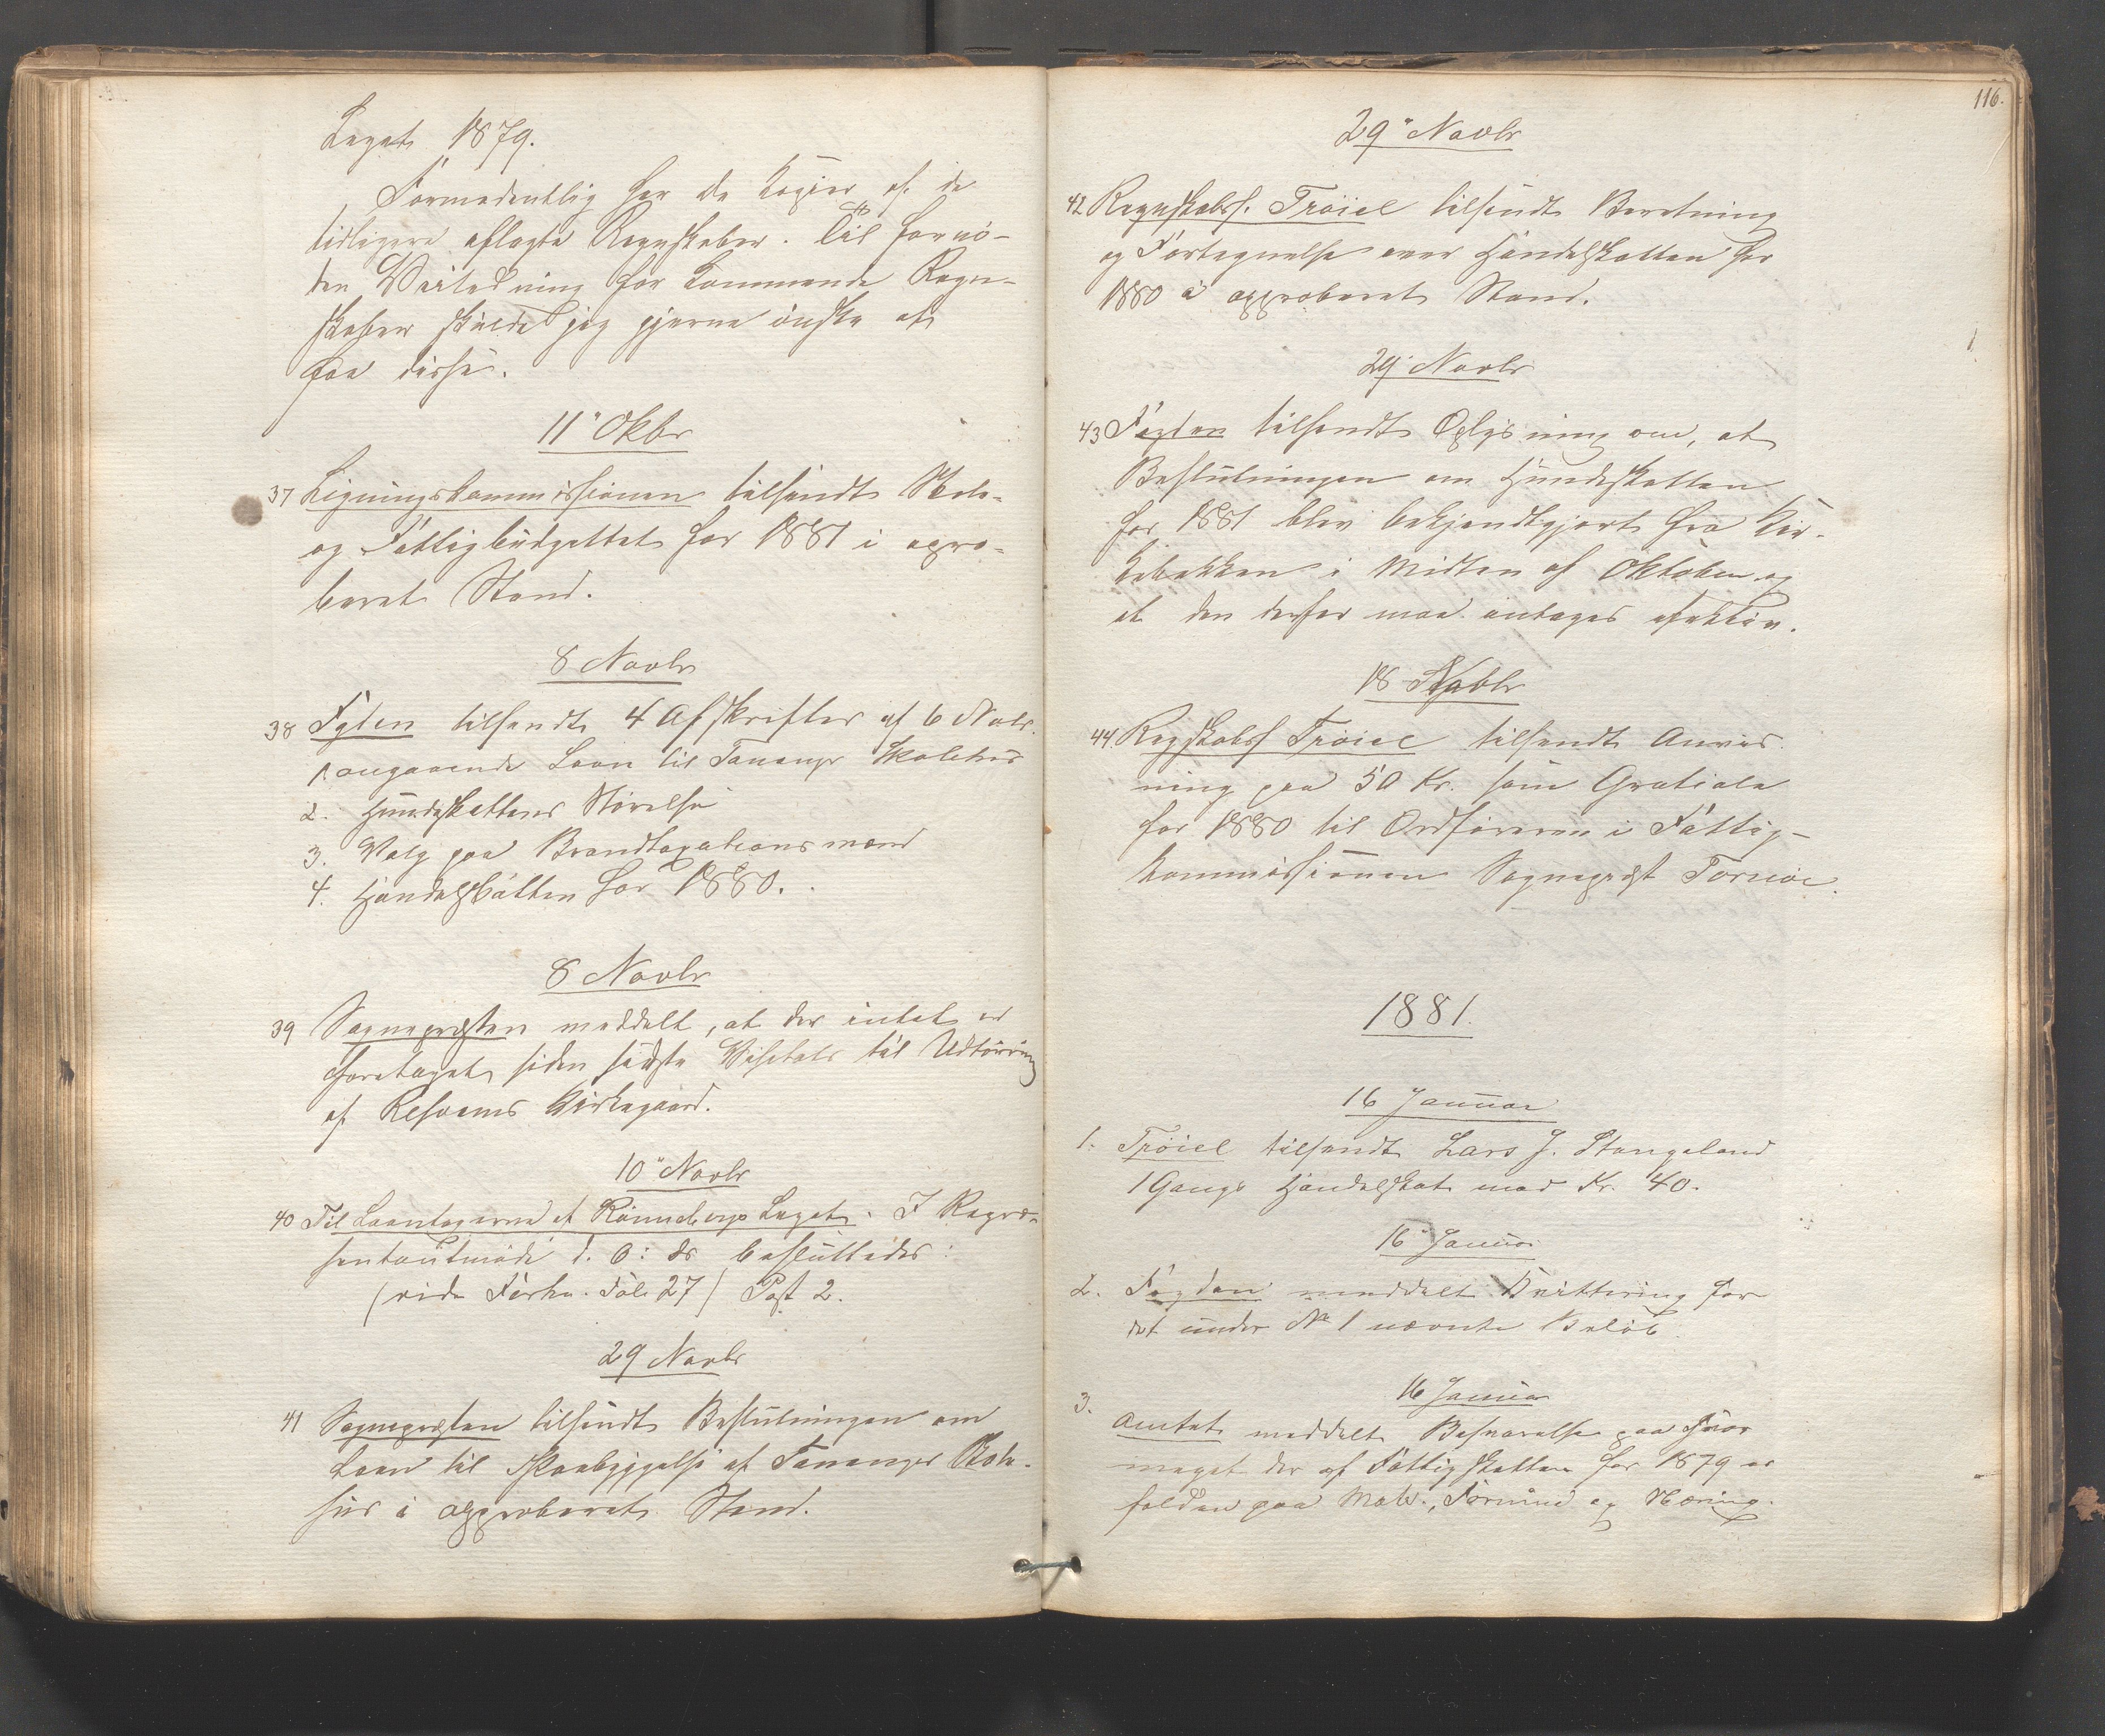 Legat 1879.
Formodentlig har De Kopier af de
tidligere aflagte Regnskaber. Til fornø-
den Veiledning for kommende Regn-
skaber skulde jeg gjerne ønske at
faa disse.
11" Okbr
37 Ligningskommissionen tilsendt Skole-
og Fattigbudgettet for 1881 i appro-
beret Stand.
8 Novbr
38 Fgden tilsendt 4 Afskrifter af 6 Nvbr.
1. angaaende Laan til Tananger Skolehus
2. Hundeskattens Størelse
3. Valg paa Brandtaxationsmænd
4. Handelsskatten for 1880.
8 Novbr
39 Sognepræsten meddelt, at der intet er
foretaget siden sidste Visitats til Udtørring
af Refsnes Kirkegaard.
10" Novbr
40 Til Laantagerne af Rønnebergs Legat. I Repræ-
sentantmøde d. 6: ds besluttedes:
(vide Forhn. Fol. 27) Post 2.
29 Novbr
41 Sognepræsten tilsendt Beslutningen om
Laan til Paabyggelse af Tananger Skole-
hus i approberet Stand.
116.
29" Novbr
42 Regnskabsf. Trøiel tilsendt Beretning
og Fortegnelse over Handelsskatten for
1880 i approberet Stand.
29" Novbr
43 Fogden tilsendt Oplysning om, at
Beslutningen om Hundeskatten
for 1881 blev bekjendtgjort fra Kir-
kebakken i Midten af Oktober og
at den derfor maa antages effektiv.
18 Novbr
44. Regskabsf Trøiel tilsendt Anvis-
ning paa 50 Kr. som Gratiale
for 1880 til Ordføreren i Fattig-
kommissionen Sognepræst Tornøe.
1881.
16 Januar
1. Trøiel tilsendt Lars J. Stangeland
1 Gangs Handelsskat med Kr. 40.
16 Januar
2. Fogden meddelt Kvittering for
det under No 1 nævnte Beløb.
16 Januar
3. Amtet meddelt Besvarelse paa hvor
meget der af Fattigskatten for 1879 er
falden paa Matr., Formue og Næring.